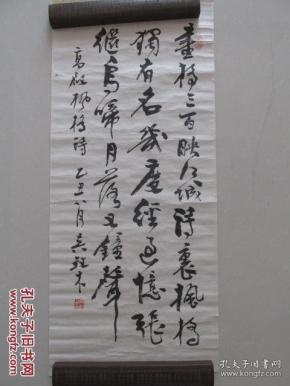 画桥三百映江城诗里枫桥
独有名几度经过忆张
继乌啼月落又钟声
高启枫桥诗 乙丑八月
孔夫子旧书网